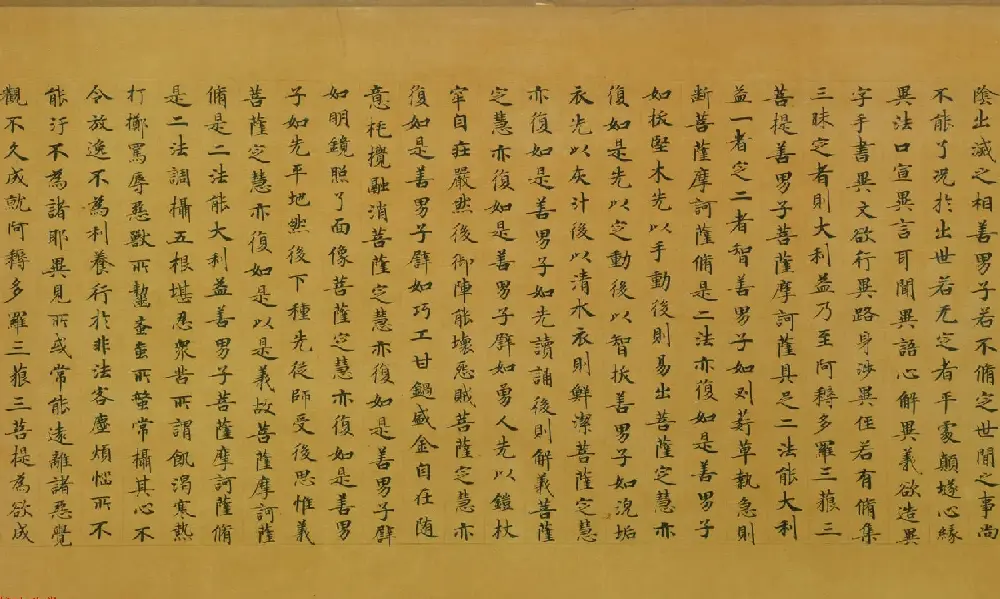 陰出滅之相善男子若不脩定世間之事尚
不能了况於出世若无定者平處顛墜心緣
異法口宣異言耳聞異語心解異義欲造異
字手書異文欲行異路身涉異徑若有脩集
三昧定者則大利益乃至阿耨多羅三藐三
菩提善男子菩薩摩訶薩具足二法能大利
益一者定二者智善男子如刈菥草執急則
断菩薩摩訶薩脩是二法亦復如是善男子
如拔堅木先以手動後則易出菩薩定慧亦
復如是先以定動後以智拔善男子如浣垢
衣先以灰汁後以清水衣則鮮潔菩薩定慧
亦復如是善男子如先讀誦後則解義菩薩
定慧亦復如是善男子譬如勇人先以鎧杖
牢自莊嚴然後御陣能壞怨賊菩薩定慧亦
復如是善男子譬如巧工甘鍋盛金自在随
意攪融消菩薩定慧亦復如是善男子譬
如明鏡照了面像菩薩定慧亦復如是善男
子如先平地然後下種先從師受後思惟義
菩薩定慧亦復如是以是義故菩薩摩訶薩
脩是二法能大利益善男子菩薩摩訶薩脩
是二法調攝五根堪忍衆苦所謂飢渴寒熱
打擲罵辱惡獸所齧蚊虻所螫常攝其心不
令放逸不為利養行於非法客塵煩惱所不
能汙不為諸耶異見所或常能遠離諸惡覺
觀不久成就阿耨多羅三藐三菩提為欲成